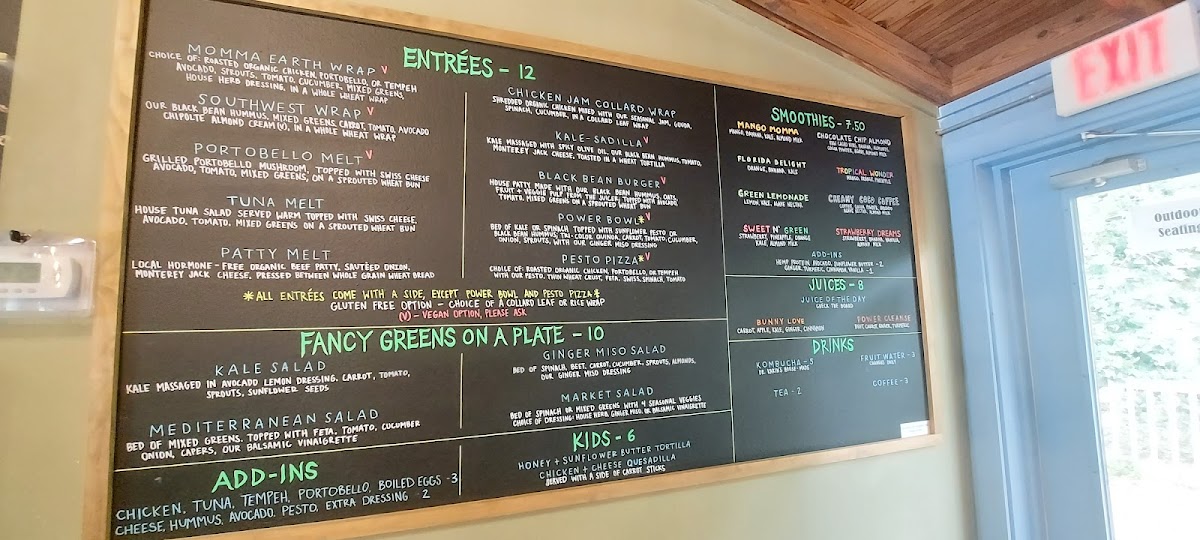 ENTRÉES - 12
MOMMA EARTH WRAP V
CHOICE OF: ROASTED ORGANIC CHICKEN, PORTOBELLO, OR TEMPEH
AVOCADO, SPROUTS, TOMATO, CUCUMBER, MIXED GREENS,
HOUSE HERB DRESSING, IN A WHOLE WHEAT WRAP
SOUTHWEST WRAP V
OUR BLACK BEAN HUMMUS, MIXED GREENS, CARROT, TOMATO, AVOCADO
CHIPOLTE ALMOND CREAM (V), IN A WHOLE WHEAT WRAP
PORTOBELLO MELT V
GRILLED PORTOBELLO MUSHROOM, TOPPED WITH SWISS CHEESE
AVOCADO, TOMATO, MIXED GREENS, ON A SPROUTED WHEAT BUN
TUNA MELT
HOUSE TUNA SALAD SERVED WARM TOPPED WITH SWISS CHEESE,
AVOCADO, TOMATO, MIXED GREENS ON A SPROUTED WHEAT BUN
PATTY MELT
LOCAL HORMONE-FREE ORGANIC BEEF PATTY, SAUTÉED ONION,
MONTEREY JACK CHEESE, PRESSED BETWEEN WHOLE GRAIN WHEAT BREAD
CHICKEN JAM COLLARD WRAP
SHREDDED ORGANIC CHICKEN MIXED WITH OUR SEASONAL JAM, GOUDA,
SPINACH, CUCUMBER, IN A COLLARD LEAF WRAP
KALE-SADILLA V
KALE MASSAGED WITH SPICY OLIVE OIL, OUR BLACK BEAN HUMMUS, TOMATO,
MONTEREY JACK CHEESE, TOASTED IN A WHEAT TORTILLA
BLACK BEAN BURGER V
HOUSE PATTY MADE WITH OUR BLACK BEAN HUMMUS, OATS,
FRUIT + VEGGIE PULP FROM THE JUICER, TOPPED WITH AVOCADO
TOMATO, MIXED GREENS ON A SPROUTED WHEAT BUN
POWER BOWL * V
BED OF KALE OR SPINACH TOPPED WITH SUNFLOWER PESTO OR
BLACK BEAN HUMMUS, TRI-COLOR QUINOA, CARROT, TOMATO, CUCUMBER,
ONION, SPROUTS, WITH OUR GINGER MISO DRESSING
PESTO PIZZA * V
CHOICE OF: ROASTED ORGANIC CHICKEN, PORTOBELLO, OR TEMPEH
WITH OUR PESTO, THIN WHEAT CRUST, FETA, SWISS, SPINACH, TOMATO
*ALL ENTRÉES COME WITH A SIDE, EXCEPT POWER BOWL AND PESTO PIZZA*
GLUTEN FREE OPTION - CHOICE OF A COLLARD LEAF OR RICE WRAP
(V) - VEGAN OPTION, PLEASE ASK
FANCY GREENS ON A PLATE - 10
KALE SALAD
KALE MASSAGED IN AVOCADO LEMON DRESSING, CARROT, TOMATO,
SPROUTS, SUNFLOWER SEEDS
MEDITERRANEAN SALAD
BED OF MIXED GREENS, TOPPED WITH FETA, TOMATO, CUCUMBER
ONION, CAPERS, OUR BALSAMIC VINAIGRETTE
GINGER MISO SALAD
BED OF SPINACH, BEET, CARROT, CUCUMBER, SPROUTS, ALMONDS,
OUR GINGER MISO DRESSING
MARKET SALAD
BED OF SPINACH OR MIXED GREENS WITH 4 SEASONAL VEGGIES
CHOICE OF DRESSING: HOUSE HERB, GINGER MISO, OR BALSAMIC VINAIGRETTE
ADD-INS
CHICKEN, TUNA, TEMPEH, PORTOBELLO, BOILED EGGS - 3
CHEESE, HUMMUS, AVOCADO, PESTO, EXTRA DRESSING - 2
KIDS - 6
HONEY + SUNFLOWER BUTTER TORTILLA
CHICKEN + CHEESE QUESADILLA
SERVED WITH A SIDE OF CARROT STICKS
SMOOTHIES - 7.50
MANGO MOMMA
MANGO, BANANA, KALE, ALMOND MILK
CHOCOLATE CHIP ALMOND
FLORIDA DELIGHT
ORANGE, BANANA, KALE
TROPICAL WONDER
MANGO, ORANGE, PINEAPPLE
GREEN LEMONADE
LEMON, KALE, AGAVE NECTAR
CREAMY COCO COFFEE
SWEET N' GREEN
STRAWBERRY, PINEAPPLE, ORANGE
KALE, ALMOND MILK
STRAWBERRY DREAMS
STRAWBERRY, BANANA,
ALMOND MILK
ADD-INS
HEMP PROTEIN, AVOCADO, SUNFLOWER BUTTER - 2
GINGER, TURMERIC, CINNAMON, VANILLA - 1
JUICES - 8
JUICE OF THE DAY
CHECK THE BOARD
BUNNY LOVE
CARROT, APPLE, KALE, GINGER, CINNAMON
POWER CLEANSE
BEET, CARROT, GINGER, TURMERIC
DRINKS
KOMBUCHA - 5
FRUIT WATER - 3
CHANGES DAILY
TEA - 2
COFFEE - 3
EXIT
Outdoor
Seating